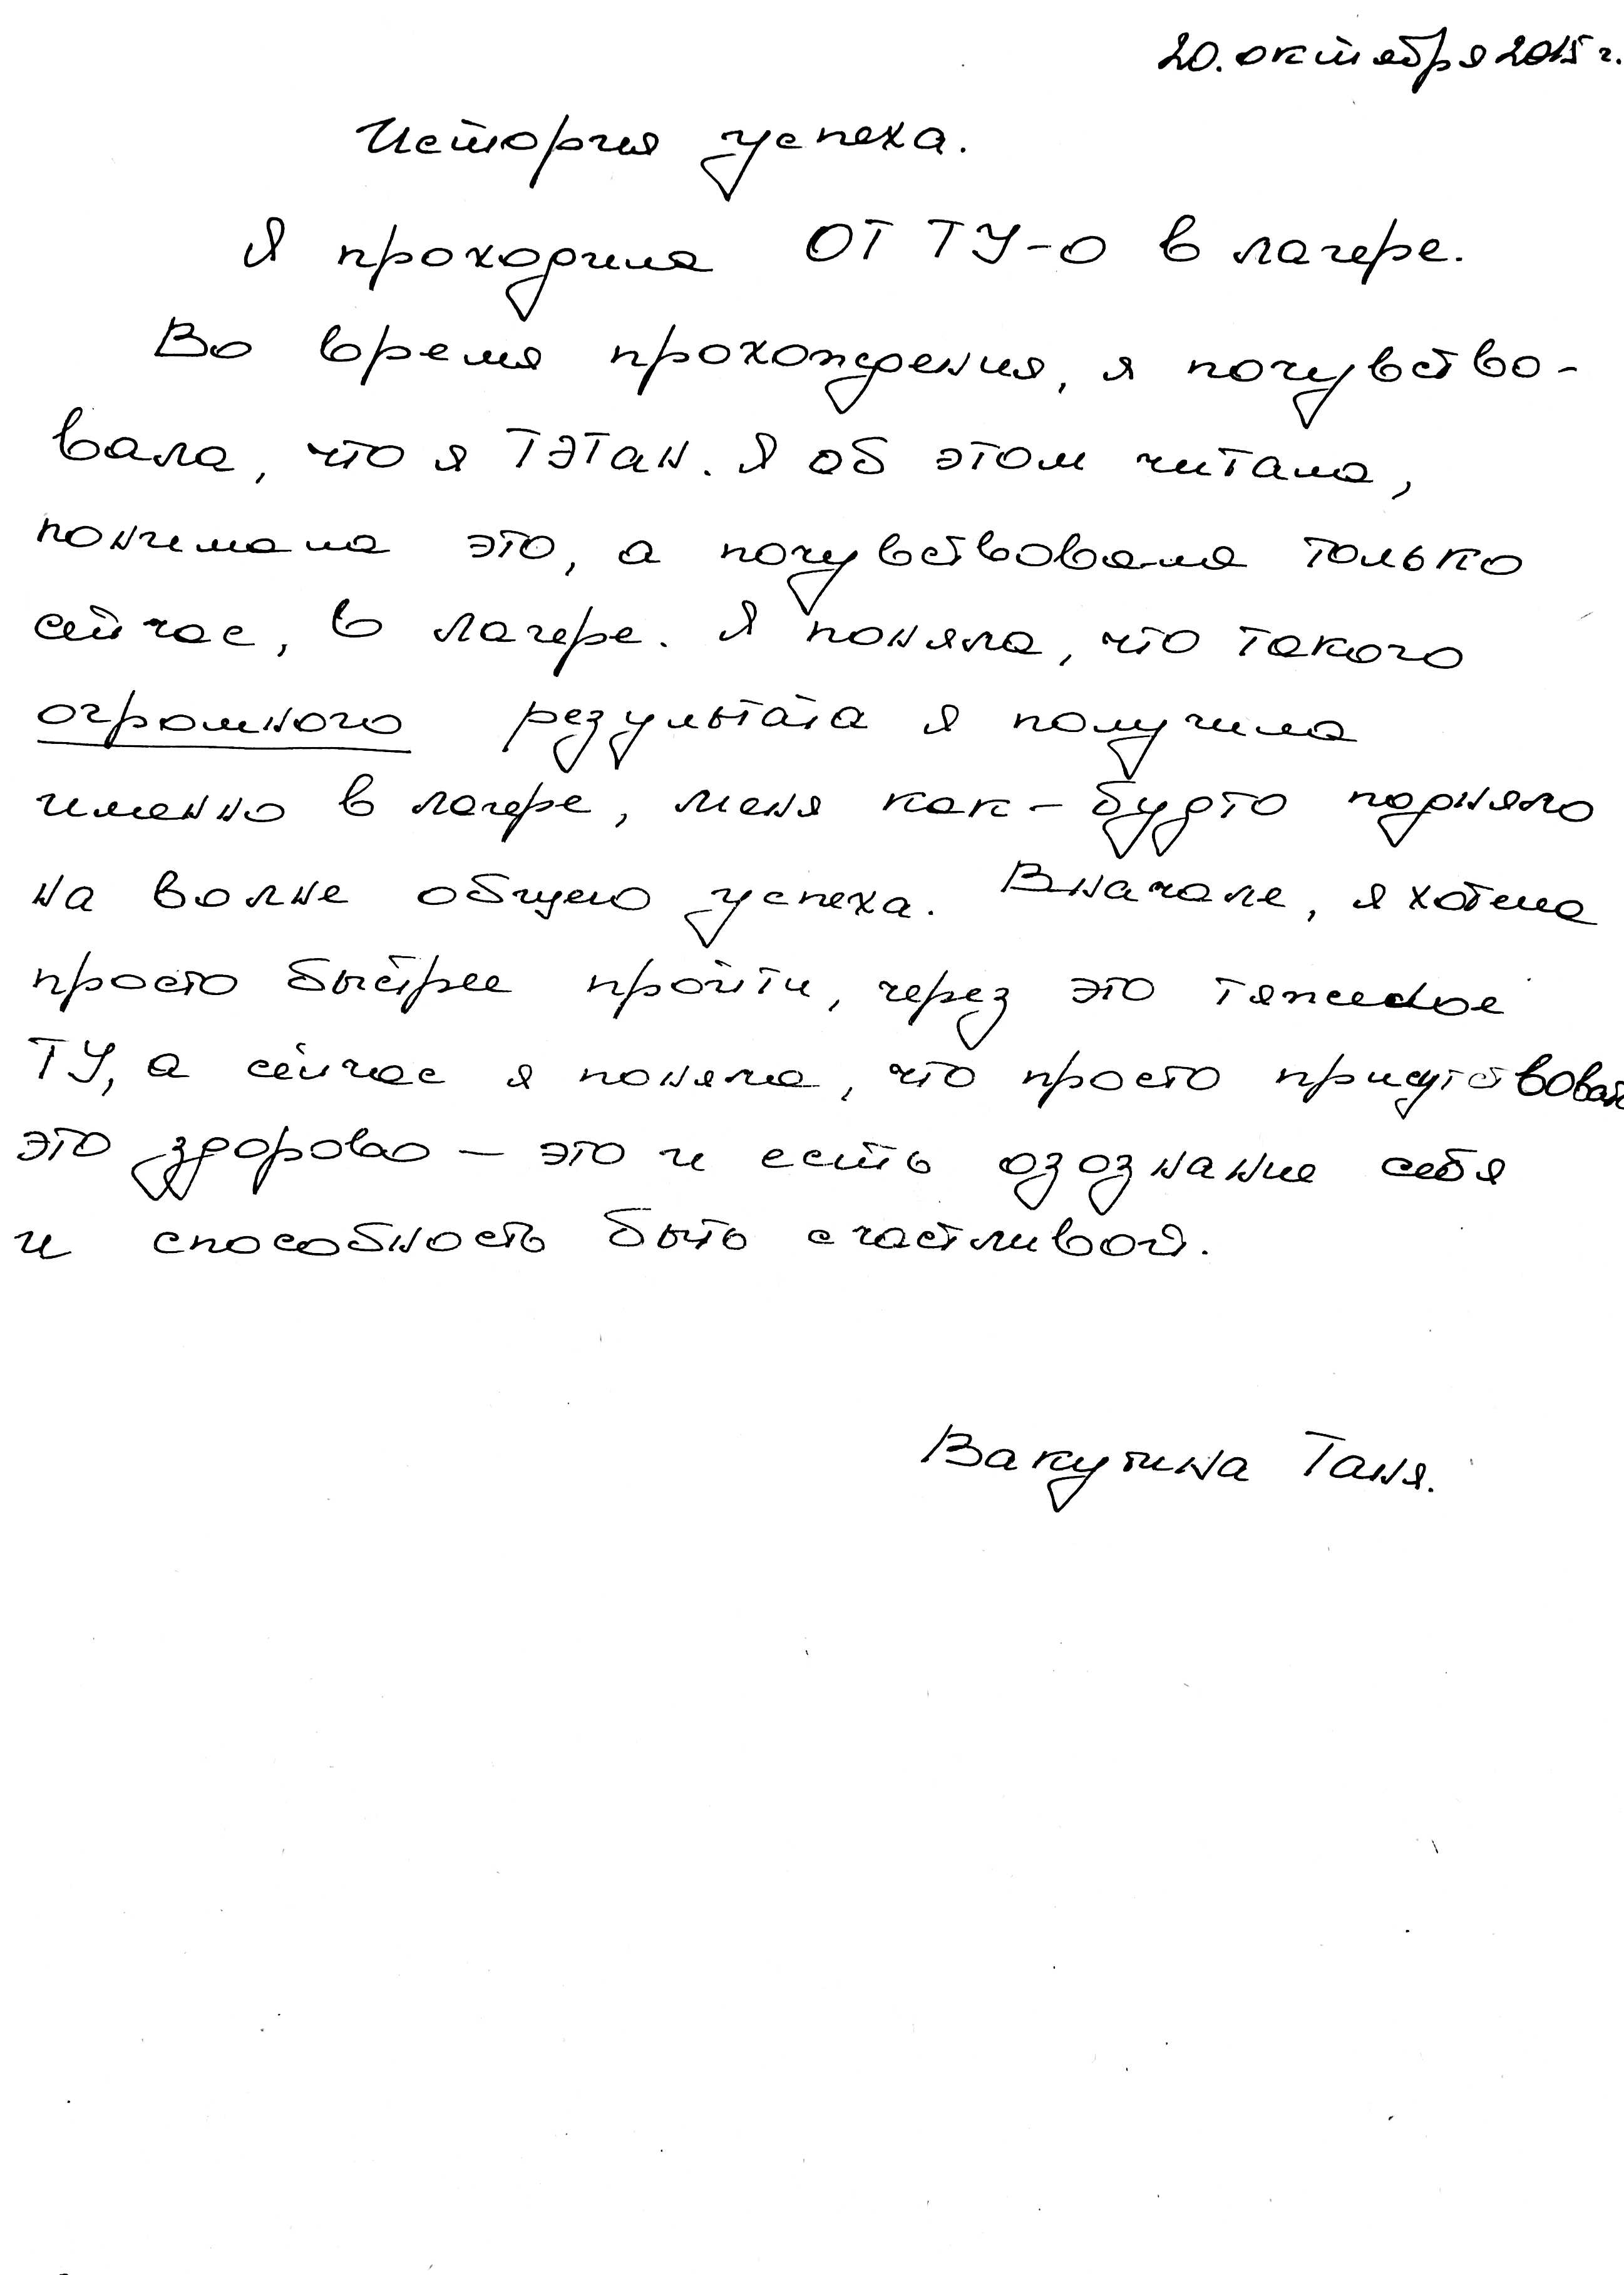 20. октября 2015 г.
История успеха.
Я проходила ОТ ТУ-0 в лагере.
Во время прохождения, я почувство-
вала, что я ТЭТАН. Я об этом читала,
понимала это, а почувствовала только
сейчас, в лагере. Я поняла, что такого
огромного результата я получила
именно в лагере, меня как-будто подняло
на волне общего успеха. Вначале, я хотела
просто быстрее пройти, через это тяжелое
ТУ, а сейчас я поняла, что просто присутствовать
это здорово - это и есть озознание себя
и способность быть счастливой.
Вакутина Таня.